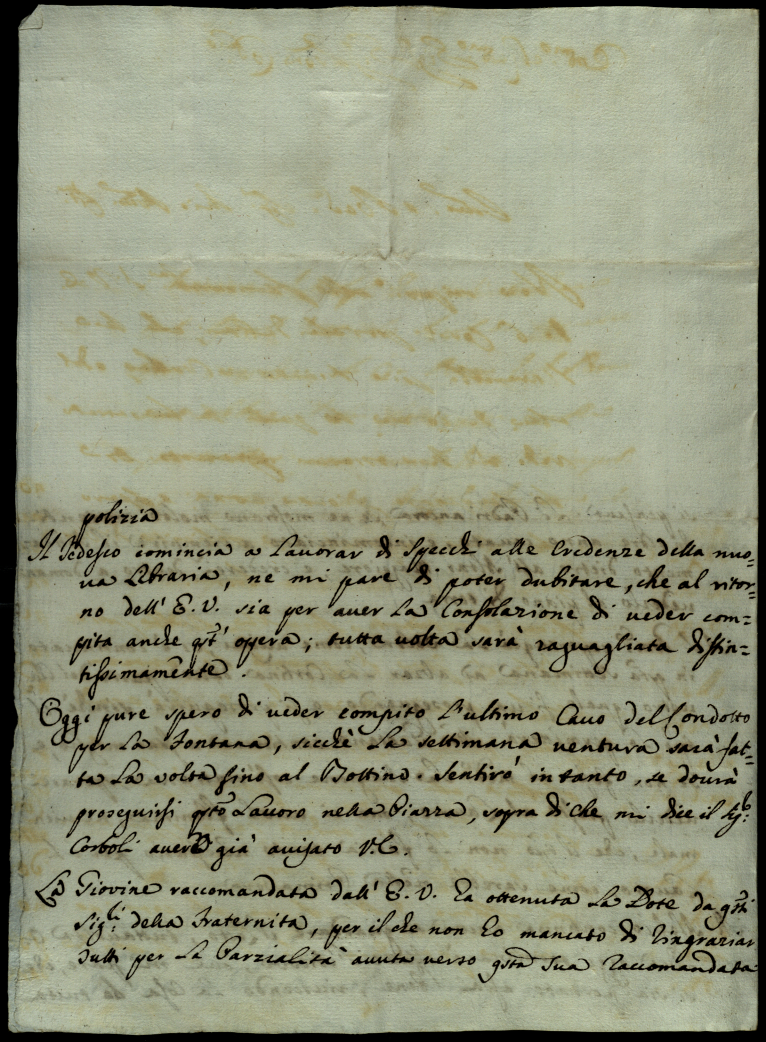 polizia
Il Tedesco comincia a Lavorar di specchi alle Credenze della nuo=
va Libraria, ne mi pare di poter dubitare, che al ritor=
no dell' E. V. sia per aver La Consolazione di veder com=
pita anche qst' opera; tutta volta sarà raguagliata distin=
tissimamente.
Oggi pure spero di veder compito L'ultimo Cavo del Condotto
per La Fontana, sicchè La settimana ventura sarà fat=
ta La volta sino al Bottino. Sentirò intanto, se dovrà
proseguirsi qsto Lavoro nella Piazza, sopra di che mi dice il Sigr.
Corboli averlo già avisato V.E.
La Giovine raccomandata dall' E. V. ha ottenuta La Dote da qsti
Sigri. della Fraternita, per il che non ho mancato di ringraziar
tutti per La Parzialità avuta verso qsta sua raccomandata